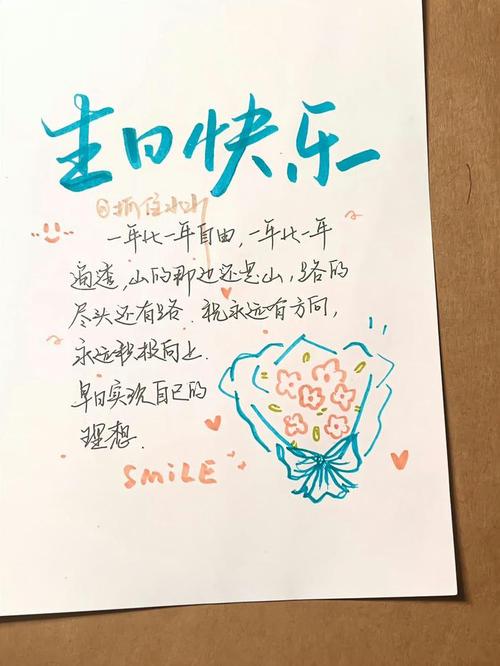 生日快乐
@抓住水水
一年比一年自由，一年比一年
通透，山的那边还是山，路的
尽头还有路．祝永远有方向，
永远积极向上．
早日实现自己的
理想．
SMiLE